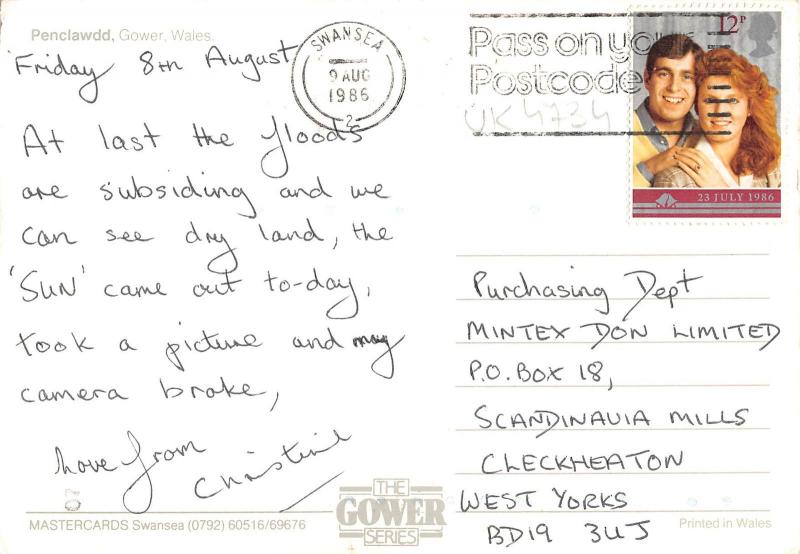 Penclawdd, Gower, Wales.
Friday 8TH August
SWANSEA
9 AUG
1986
2
Pass on your
Postcode
UK 4734
12P
23 JULY 1986
At last the floods
are subsiding and we
can see dry land, the
'SUN' came out to-day,
took a picture and my
camera broke,
Love from
Christine
Purchasing Dept
MINTEX DON LIMITED
P.O. BOX 18,
SCANDINAVIA MILLS
CLECKHEATON
WEST YORKS
BD19 3UJ
THE
GOWER
SERIES
MASTERCARDS Swansea (0792) 60516/69676
Printed in Wales